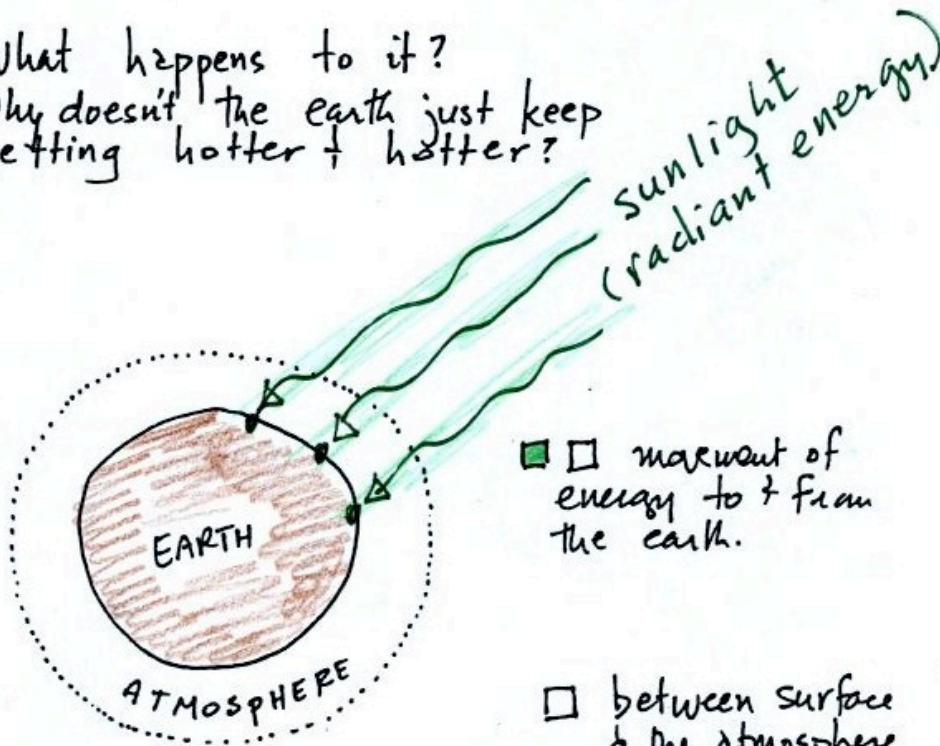 What happens to it?
hy doesn't the earth just keep
etting hotter & hotter?
sunlight
(radiant energy)
EARTH
ATMOSPHERE
movement of
energy to & from
the earth.
between surface
& the atmosphere